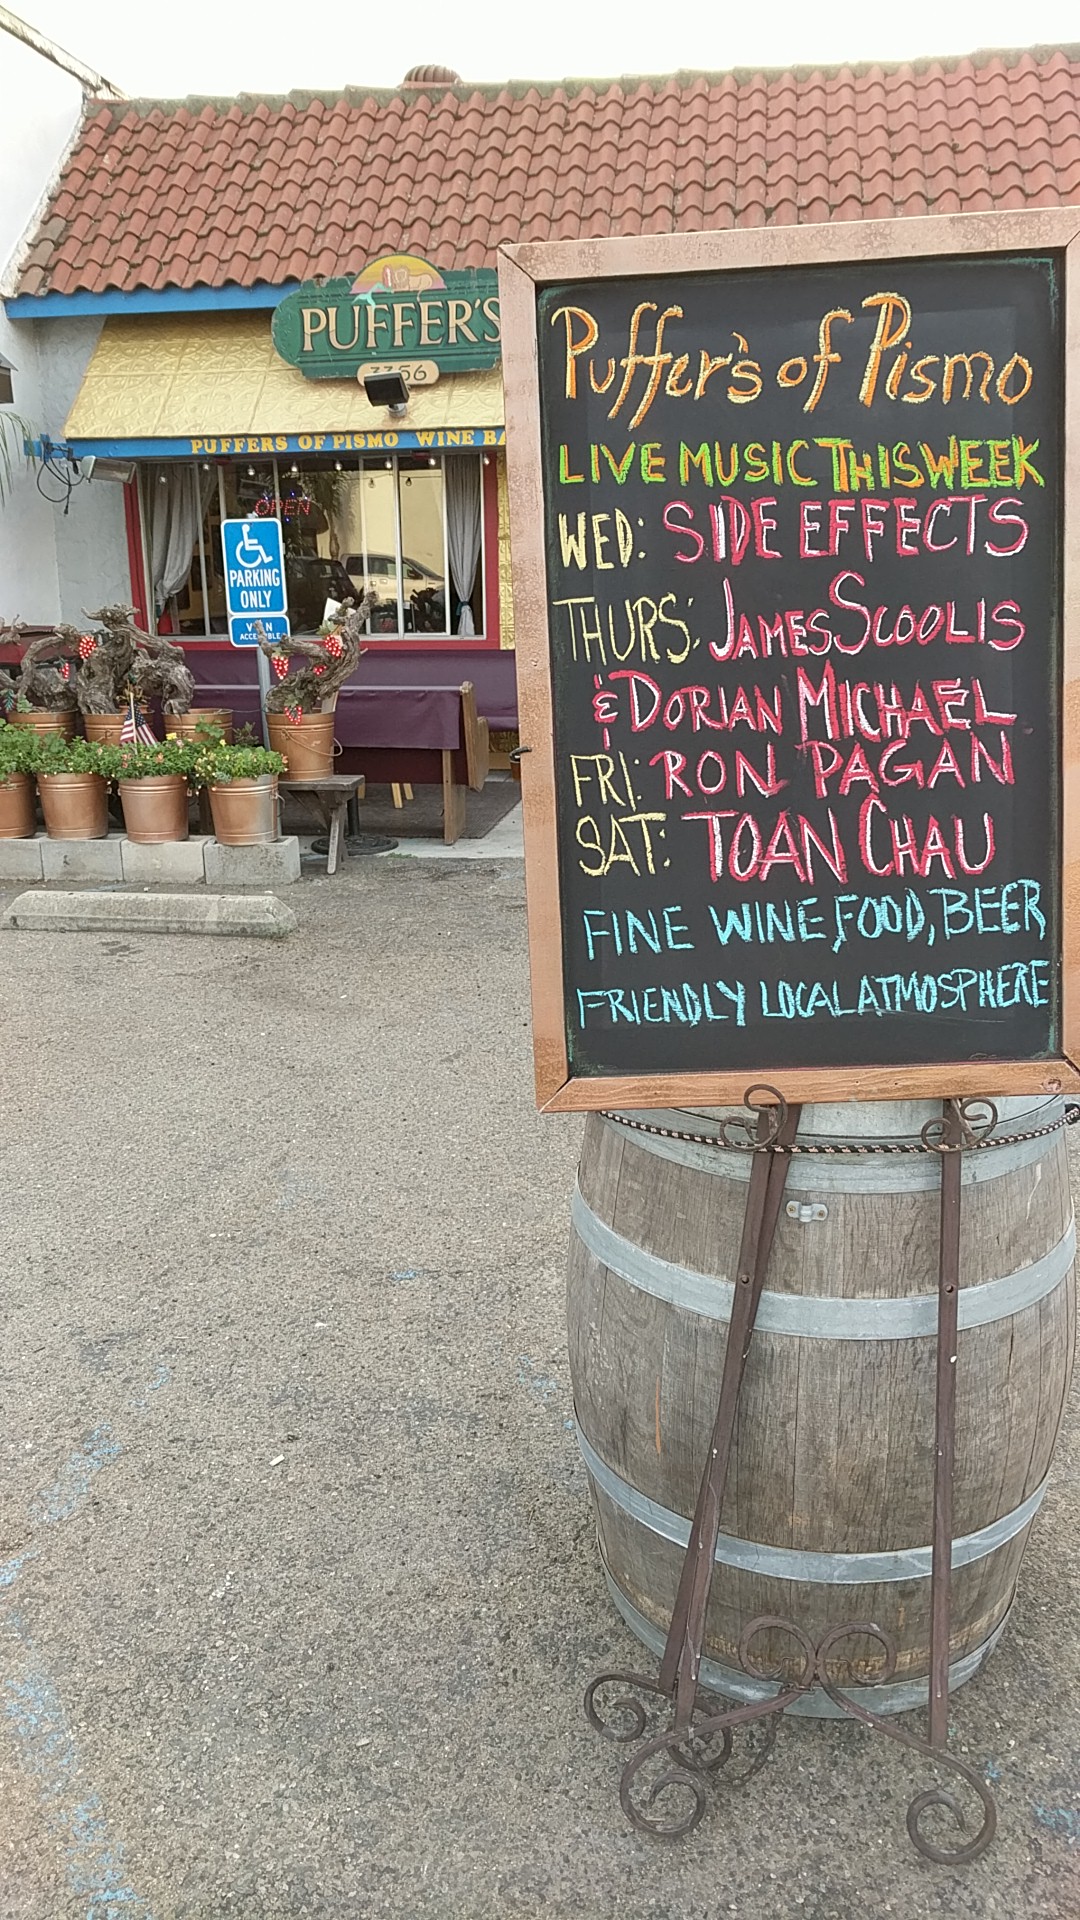 PUFFER'S
3356
PUFFERS OF PISMO WINE
OPEN
PARKING
ONLY
VAN
ACCESSIBLE
Puffer's of Pismo
LIVE MUSIC THIS WEEK
WED: SIDE EFFECTS
THURS: JAMES SCOOLIS
& DORIAN MICHAEL
FRI: RON PAGAN
SAT: TOAN CHAU
FINE WINE, FOOD, BEER
FRIENDLY LOCAL ATMOSPHERE